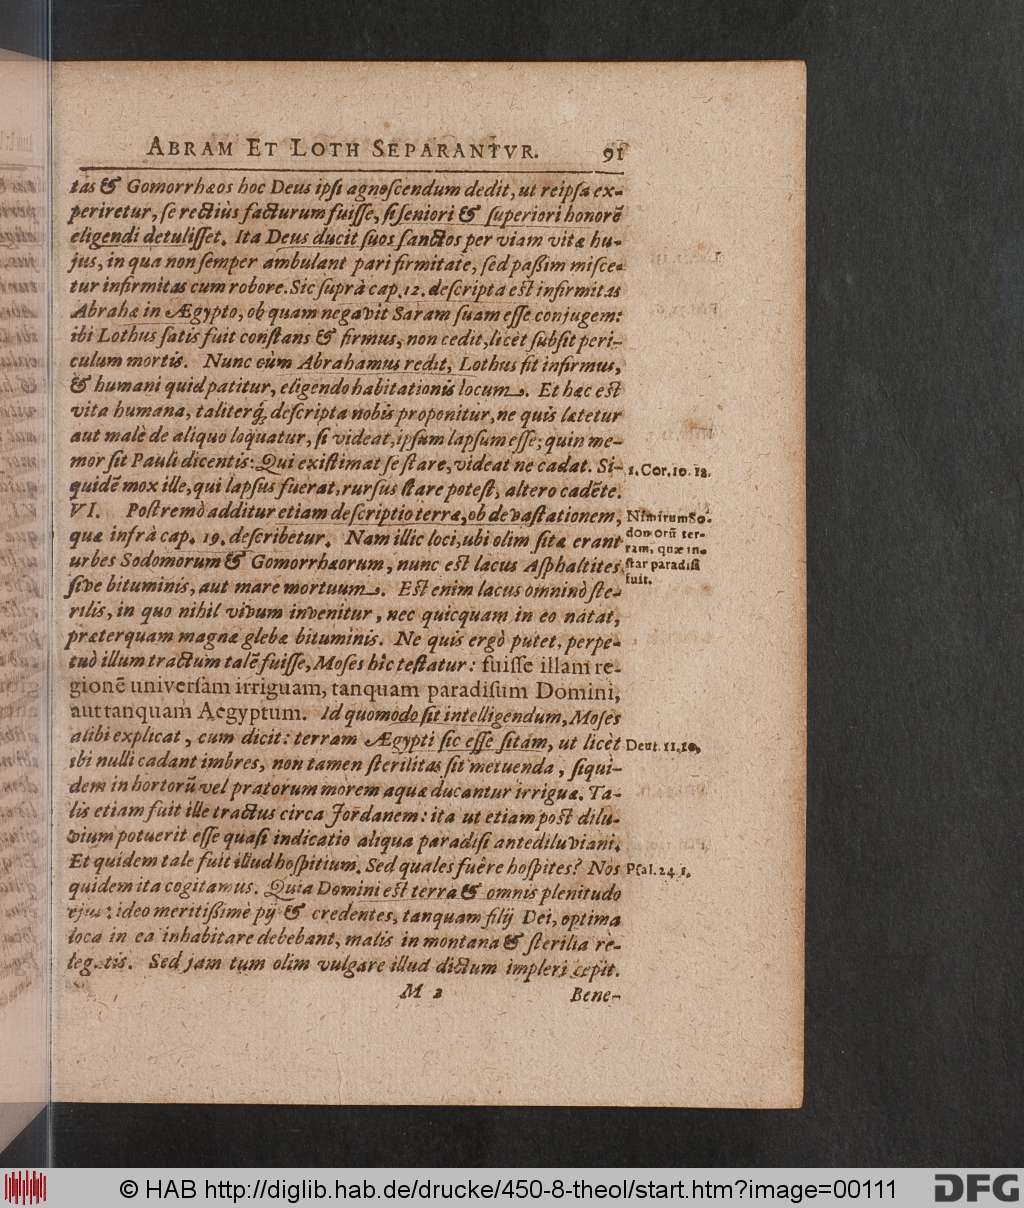 ABRAM ET LOTH SEPARANTVR. 91
tas & Gomorrhæos hoc Deus ipsi agnoscendum dedit, ut reipsa ex-
periretur, se rectiùs facturum fuisse, si seniori & superiori honorē
eligendi detulisset. Ita Deus ducit suos sanctos per viam vitæ hu-
jus, in qua non semper ambulant pari firmitate, sed paßim misce-
tur infirmitas cum robore. Sic suprà cap. 12. descripta est infirmitas
Abrahæ in Ægypto, ob quam negavit Saram suam esse conjugem:
ibi Lothus satis fuit constans & firmus, non cedit, licèt subsit peri-
culum mortis. Nunc cùm Abrahamus redit, Lothus fit infirmus,
& humani quid patitur, eligendo habitationis locum. Et hæc est
vita humana, taliterq́; descripta nobis proponitur, ne quis lætetur
aut malè de aliquo loquatur, si videat, ipsum lapsum esse; quin me-
mor sit Pauli dicentis: Qui existimat se stare, videat ne cadat. Si-
1. Cor. 10. 12.
quidē mox ille, qui lapsus fuerat, rursus stare potest, altero cadēte.
VI. Postremò additur etiam descriptio terræ, ob devastationem,
Nimirum So-
quæ infrà cap. 19. describetur. Nam illic loci, ubi olim sitæ erant
domorū ter-
ram, quæ in-
urbes Sodomorum & Gomorrhæorum, nunc est lacus Asphaltites
star paradisi
sive bituminis, aut mare mortuum. Est enim lacus omninò ste-
fuit.
rilis, in quo nihil vivum invenitur, nec quicquam in eo natat,
præterquam magnæ glebæ bituminis. Ne quis ergò putet, perpe-
tuò illum tractum talē fuisse, Moses hîc testatur: fuisse illam re-
gionē universam irriguam, tanquam paradisum Domini,
aut tanquam Aegyptum. Id quomodo sit intelligendum, Moses
alibi explicat, cum dicit: terram Ægypti sic esse sitam, ut licèt
Deut. 11. 10,
ibi nulli cadant imbres, non tamen sterilitas sit metuenda, siqui-
dem in hortorū vel pratorum morem aquæ ducantur irriguæ. Ta-
lis etiam fuit ille tractus circa Jordanem: ita ut etiam post dilu-
vium potuerit esse quasi indicatio aliqua paradisi antediluviani.
Et quidem tale fuit illud hospitium. Sed quales fuêre hospites? Nos
Psal. 24 1.
quidem ita cogitamus. Quia Domini est terra & omnis plenitudo
ejus: ideo meritißimè pij & credentes, tanquam filij Dei, optima
loca in ea inhabitare debebant, malis in montana & sterilia re-
legatis. Sed jam tum olim vulgare illud dictum impleri cepit.
M 2 Bene-
© HAB http://diglib.hab.de/drucke/450-8-theol/start.htm?image=00111
DFG